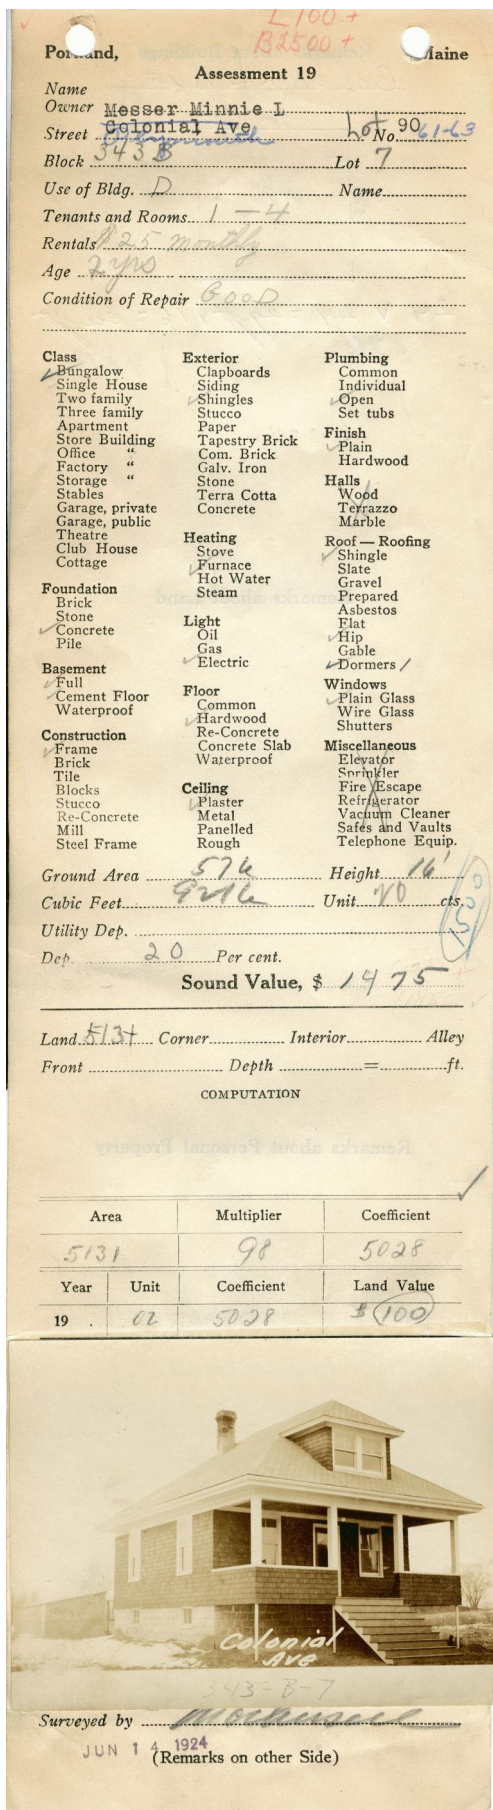 L 100 +
B 2500 +
Portland, Maine
Assessment 19
Name
Owner Messer Minnie L
Street Colonial Ave Lot No 90 61-63
Block 343 B Lot 7
Use of Bldg. D Name
Tenants and Rooms 1 - 4
Rentals $25 monthly
Age 2 yrs
Condition of Repair GOOD
Class
Bungalow
Single House
Two family
Three family
Apartment
Store Building
Office "
Factory "
Storage "
Stables
Garage, private
Garage, public
Theatre
Club House
Cottage
Foundation
Brick
Stone
Concrete
Pile
Basement
Full
Cement Floor
Waterproof
Construction
Frame
Brick
Tile
Blocks
Stucco
Re-Concrete
Mill
Steel Frame
Exterior
Clapboards
Siding
Shingles
Stucco
Paper
Tapestry Brick
Com. Brick
Galv. Iron
Stone
Terra Cotta
Concrete
Heating
Stove
Furnace
Hot Water
Steam
Light
Oil
Gas
Electric
Floor
Common
Hardwood
Re-Concrete
Concrete Slab
Waterproof
Ceiling
Plaster
Metal
Panelled
Rough
Plumbing
Common
Individual
Open
Set tubs
Finish
Plain
Hardwood
Halls
Wood
Terrazzo
Marble
Roof — Roofing
Shingle
Slate
Gravel
Prepared
Asbestos
Flat
Hip
Gable
Dormers /
Windows
Plain Glass
Wire Glass
Shutters
Miscellaneous
Elevator
Sprinkler
Fire Escape
Refrigerator
Vacuum Cleaner
Safes and Vaults
Telephone Equip.
Ground Area 576 Height 16'
Cubic Feet 9216 Unit 20 cts.
Utility Dep.
Dep. 20 Per cent.
Sound Value, $ 1475
Land 5131 Corner Interior Alley
Front Depth = ft.
COMPUTATION
Area Multiplier Coefficient
5131 98 5028
Year Unit Coefficient Land Value
19 . 02 5028 $ 100
Colonial
Ave
343-B-7
Surveyed by
JUN 14 1924
(Remarks on other Side)